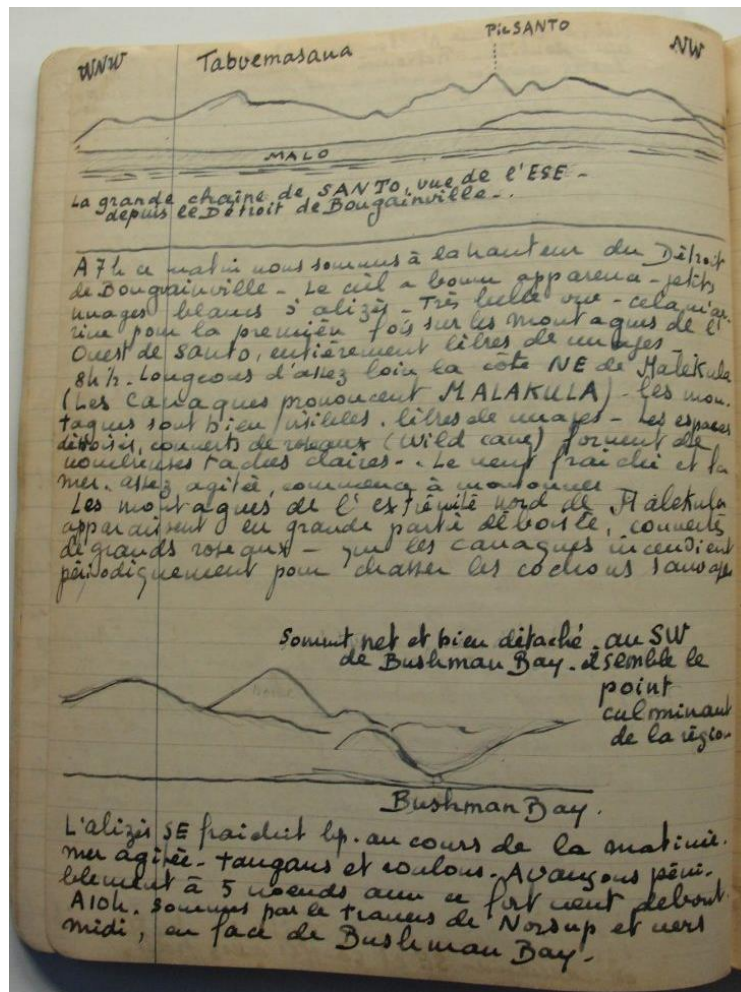 WNW
Tabuemasana
Pic SANTO
NW
MALO
La grande chaîne de SANTO, vue de l'ESE -
depuis le Détroit de Bougainville -.
A 7h ce matin nous sommes à la hauteur du Détroit
de Bougainville - Le ciel a bonne apparence - petits
nuages blancs d'alizés - Très belle vue - cela m'ar-
rive pour la première fois sur les montagnes de l'
Ouest de Santo, entièrement libres de nuages -
8h½. Longeons d'assez loin la côte NE de Malekula
(Les Canaques prononcent MALAKULA) - les mon-
tagnes sont bien visibles, libres de nuages - Les espaces
déboisés, couverts de roseaux (Wild cane) forment de
nombreuses taches claires -. Le vent fraichit et la
mer, assez agitée, commence à moutonner -
Les montagnes de l'extrémité nord de Malekula
apparaissent en grande partie déboisées, couvertes
de grands roseaux - que les canaques incendient
périodiquement pour chasser les cochons sauvages
Sommet net et bien détaché au SW
de Bushman Bay. Il semble le
point
culminant
de la région
Bushman Bay.
L'alizés SE fraichit bp. au cours de la matinée.
mer agitée - tangons et roulons - Avançons péni-
blement à 5 noeuds avec ce fort vent debout.
A 10h. sommes par le travers de Norsup et vers
midi, en face de Bushman Bay -